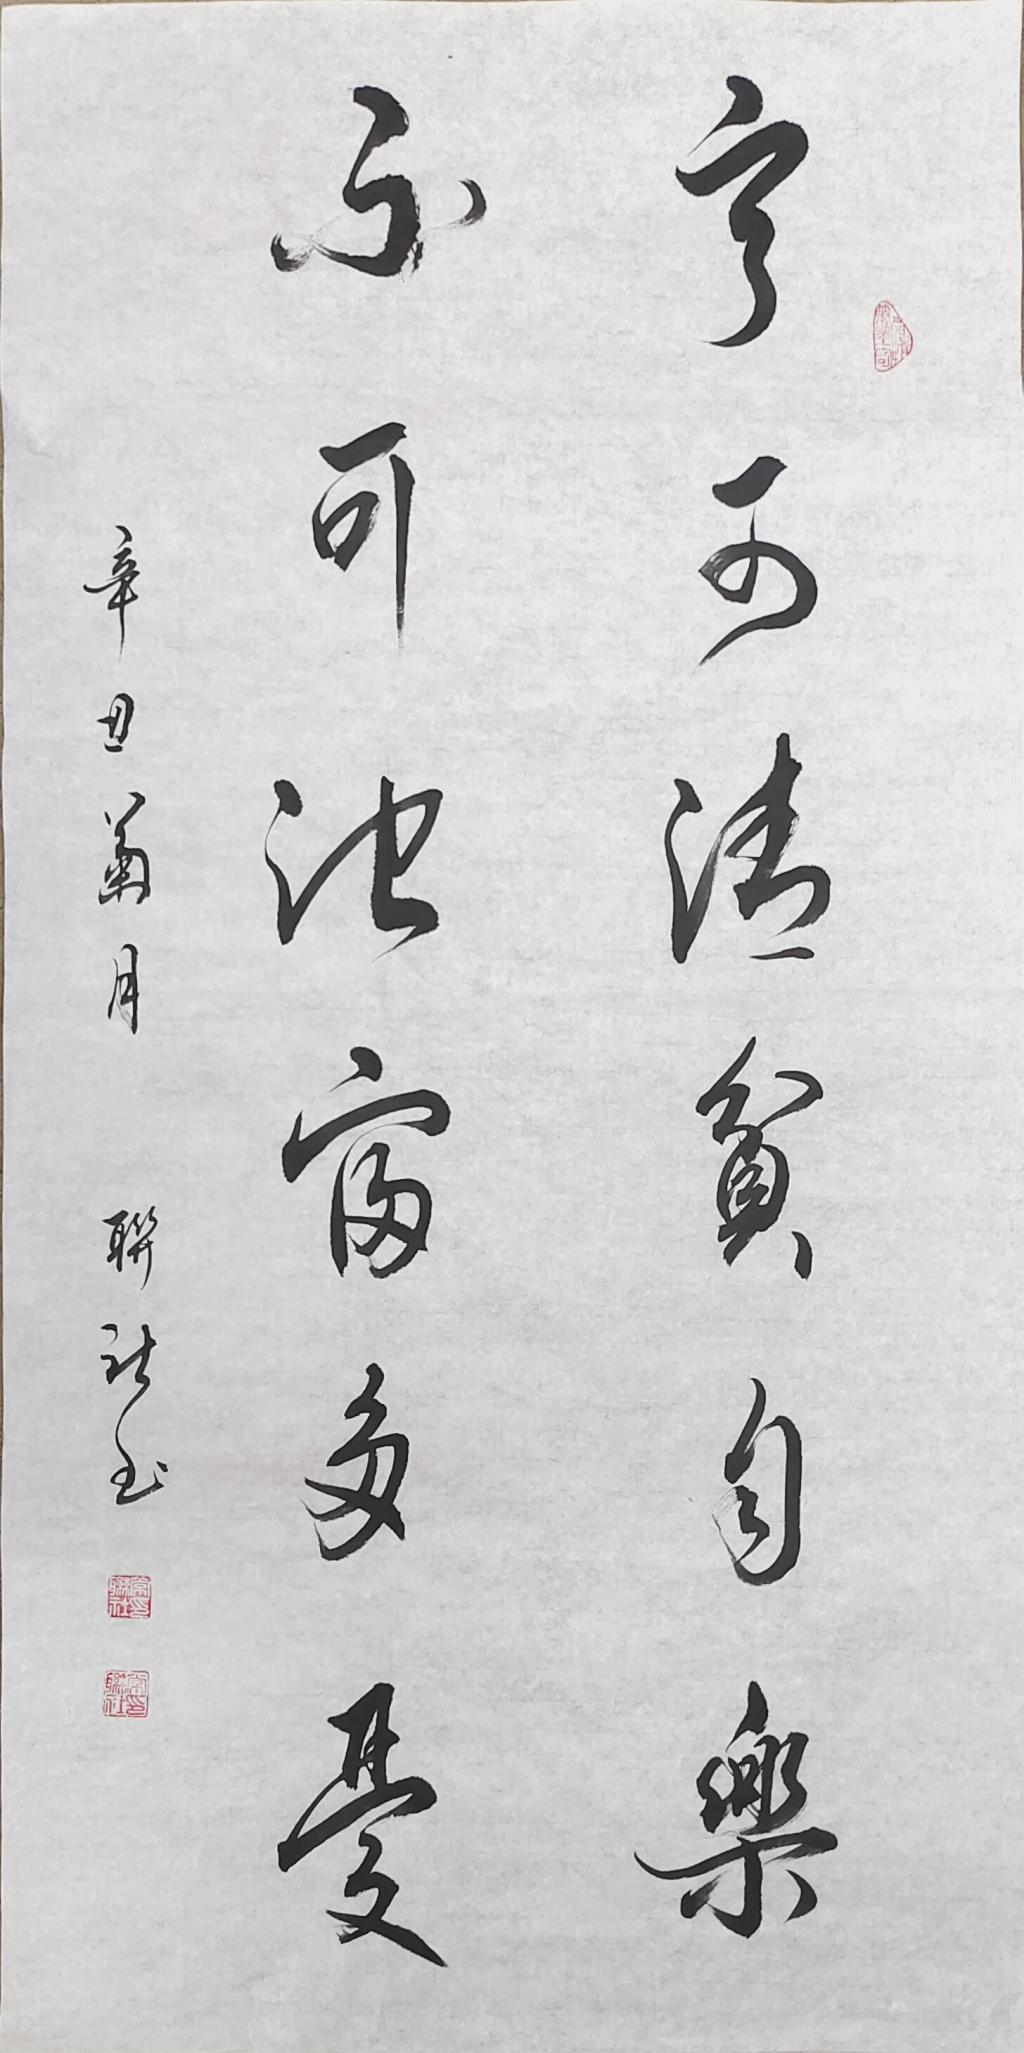 寧可清貧自樂
不可濁富多憂
辛丑菊月 聯社書